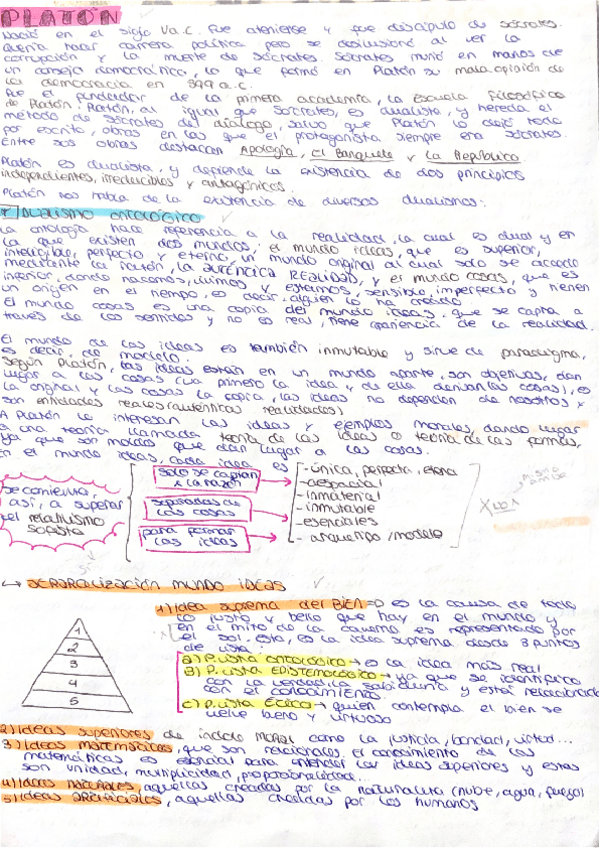 PLATÓN
Nació en el siglo V a.C. Fue ateniense y fue discípulo de Sócrates.
Quería hacer carrera política pero se desilusionó al ver la
corrupción y la muerte de Sócrates. Sócrates murió en manos de
un consejo democrático, lo que formó en Platón su mala opinión de
la democracia en 399 a.c.
Fue el fundador de la primera academia, la escuela filosófica
de Platón. Platón, al igual que Sócrates, es dualista, y hereda el
método de Sócrates del diálogo, salvo que Platón lo dejó todo
por escrito, obras en las que el protagonista siempre era Sócrates.
Entre sus obras destacan Apología, El Banquete y La República.
Platón es dualista, y defiende la existencia de dos principios
independientes, irreducibles y antagónicos.
Platón nos habla de la existencia de diversos dualismos:
1 DUALISMO ONTOLÓGICO
La ontología hace referencia a la realidad, la cual es dual y en
la que existen dos mundos: el mundo ideas, que es superior,
inteligible, perfecto y eterno, un mundo original al cual solo se accede
mediante la razón, la AUTÉNTICA REALIDAD, y el mundo cosas, que es
inferior, donde nacemos, vivimos y estamos, sensible, imperfecto y tienen
un origen en el tiempo, es decir, alguien lo ha creado.
El mundo cosas es una copia del mundo ideas, que se capta a
través de los sentidos y no es real, tiene apariencia de la realidad.
El mundo de las ideas es también inmutable y sirve de paradigma,
es decir, de modelo.
Según Platón, las ideas están en un mundo aparte, son objetivas, dan
lugar a las cosas (va primero la idea y de ella derivan las cosas), es
la original y las cosas la copia, las ideas no dependen de nosotros y
son entidades reales (auténticas realidades)
A Platón le interesan las ideas y ejemplos morales, dando lugar
a una teoría llamada teoría de las ideas o teoría de las formas,
ya que son moldes que dan lugar a las cosas.
En el mundo ideas, cada idea es
solo se captan x la razón
separadas de las cosas
para formar las ideas
-única, perfecta, eterna
-aespacial
-inmaterial
-inmutable
-esenciales
-arquetipo/modelo
se comienza,
así, a superar
el relativismo
sofista
↪ JERARQUIZACIÓN MUNDO IDEAS
1
2
3
4
5
1) Idea suprema del BIEN => es la causa de todo
lo justo y bello que hay en el mundo y
en el mito de la caverna es representado por
el sol. Esta, es la idea suprema desde 3 puntos
de vista:
a) P.vista ontológico → es la idea más real
B) P.vista EPISTEMOLÓGICO → ya que se identifica
con la verdad, la sabiduría y está relacionada
con el conocimiento.
c) P.vista ÉTICO → quien contempla el bien se
vuelve bueno y virtuoso
2) Ideas superiores de índole moral como la justicia, bondad, virtud...
3) Ideas matemáticas, que son relacionales. El conocimiento de las
matemáticas es esencial para entender las ideas superiores y estas
son unidad, multiplicidad, proporcionalidad...
4) Ideas naturales, aquellas creadas por la naturaleza (nube, agua, fuego)
5) Ideas artificiales, aquellas creadas por los humanos